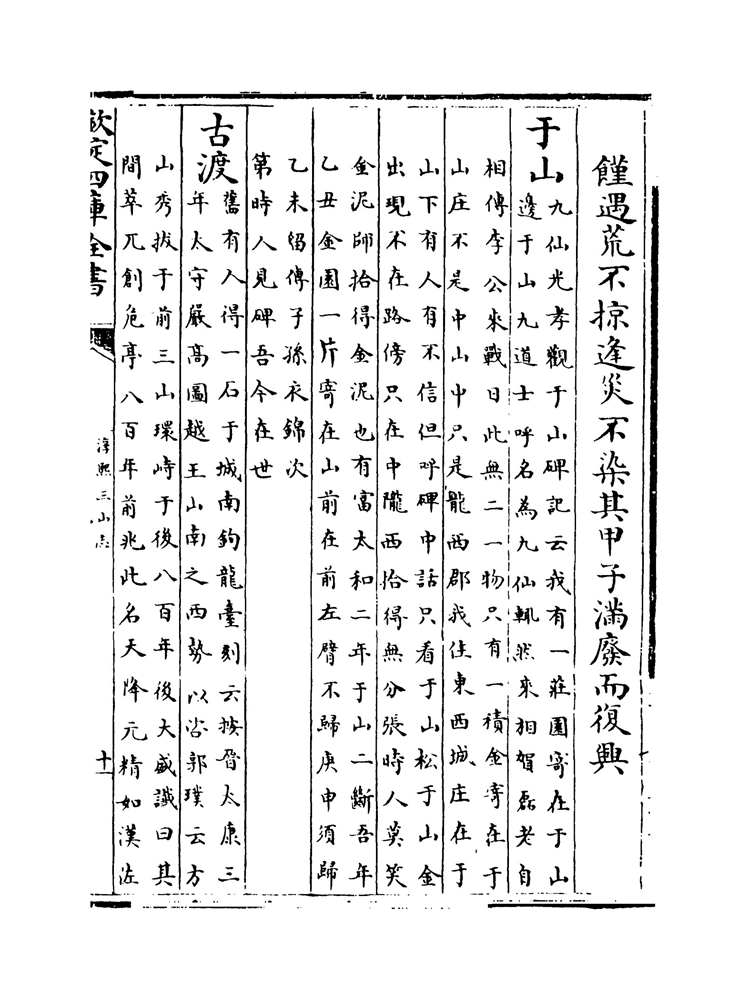 饉遇荒不掠逢災不染其甲子滿廢而復興
于山
九仙光孝觀于山碑記云我有一莊園寄在于山
邊于山九道士呼名為九仙輒然來相賀磊老自
相傳李公來戰日此無二一物只有一積金寄在于
山庄不是中山中只是龍西郡我住東西城庄在于
山下有人有不信但呼碑中話只看于山松于山金
出現不在路傍只在中隴西拾得無分張時人莫笑
金泥師拾得金泥也有富太和二年于山二斷吾年
乙丑金園一片寄在山前在前左臂不歸庚申須歸
乙未留傳子孫衣錦次
第時人見碑吾今在世
古渡
舊有人得一石于城南鈎龍臺刻云按晉太康三
年太守嚴高圖越王山南之西勢以咨郭璞云方
山秀拔于前三山環峙于後八百年後大盛讖曰其
間萃兀創危亭八百年前兆此名天降元精如漢佐
欽定四庫全書
淳熙三山志
十一